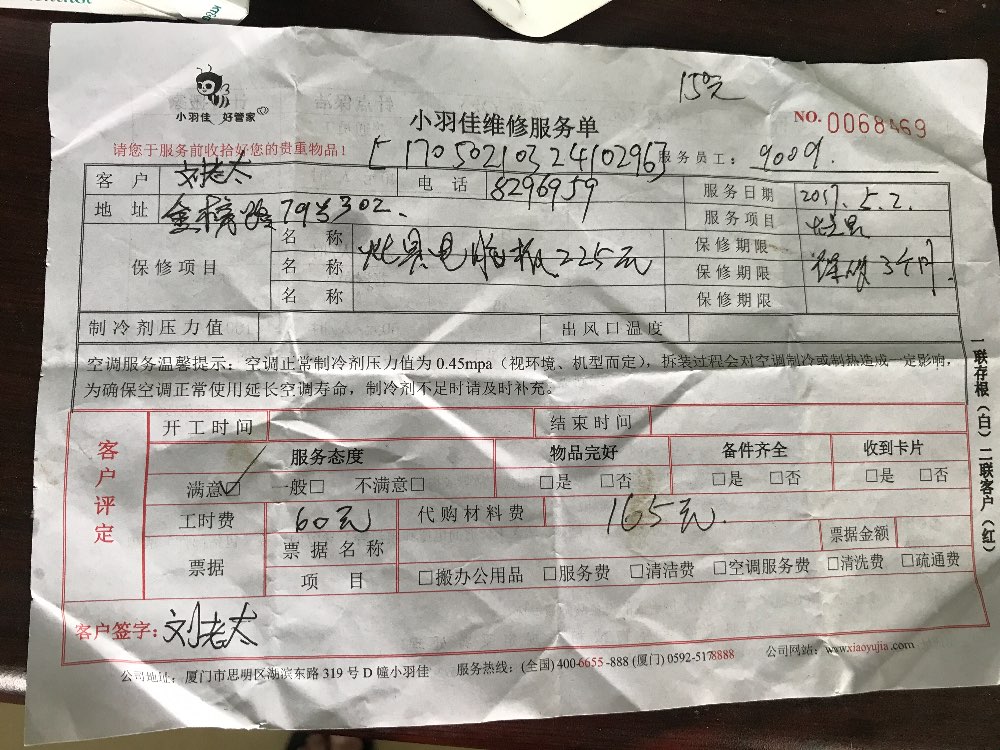 15元
小羽佳 好管家
小羽佳维修服务单
NO. 0068469
请您于服务前收拾好您的贵重物品!
17050210324102963
服务员工: 9009.
客户 刘老太 电话 8296959 服务日期 2017.5.2.
地址 金榜路79号302. 服务项目 灶具
保修项目 名称 灶具电脑板225元 保修期限
名称 保修期限 保修3个月.
名称 保修期限
制冷剂压力值 出风口温度
空调服务温馨提示:空调正常制冷剂压力值为 0.45mpa(视环境、机型而定),拆装过程会对空调制冷或制热造成一定影响,
为确保空调正常使用延长空调寿命,制冷剂不足时请及时补充。
一联存根(白)二联客户(红)
客户评定
开工时间 结束时间
服务态度 物品完好 备件齐全 收到卡片
满意☑ 一般□ 不满意□ □是 □否 □是 □否 □是 □否
工时费 60元 代购材料费 165元.
票据 票据名称 票据金额
项目 □搬办公用品 □服务费 □清洁费 □空调服务费 □清洗费 □疏通费
客户签字: 刘老太
公司地址: 厦门市思明区湖滨东路 319 号 D 幢小羽佳 服务热线: (全国) 400-6655-888 (厦门) 0592-5178888 公司网站: www.xiaoyujia.com